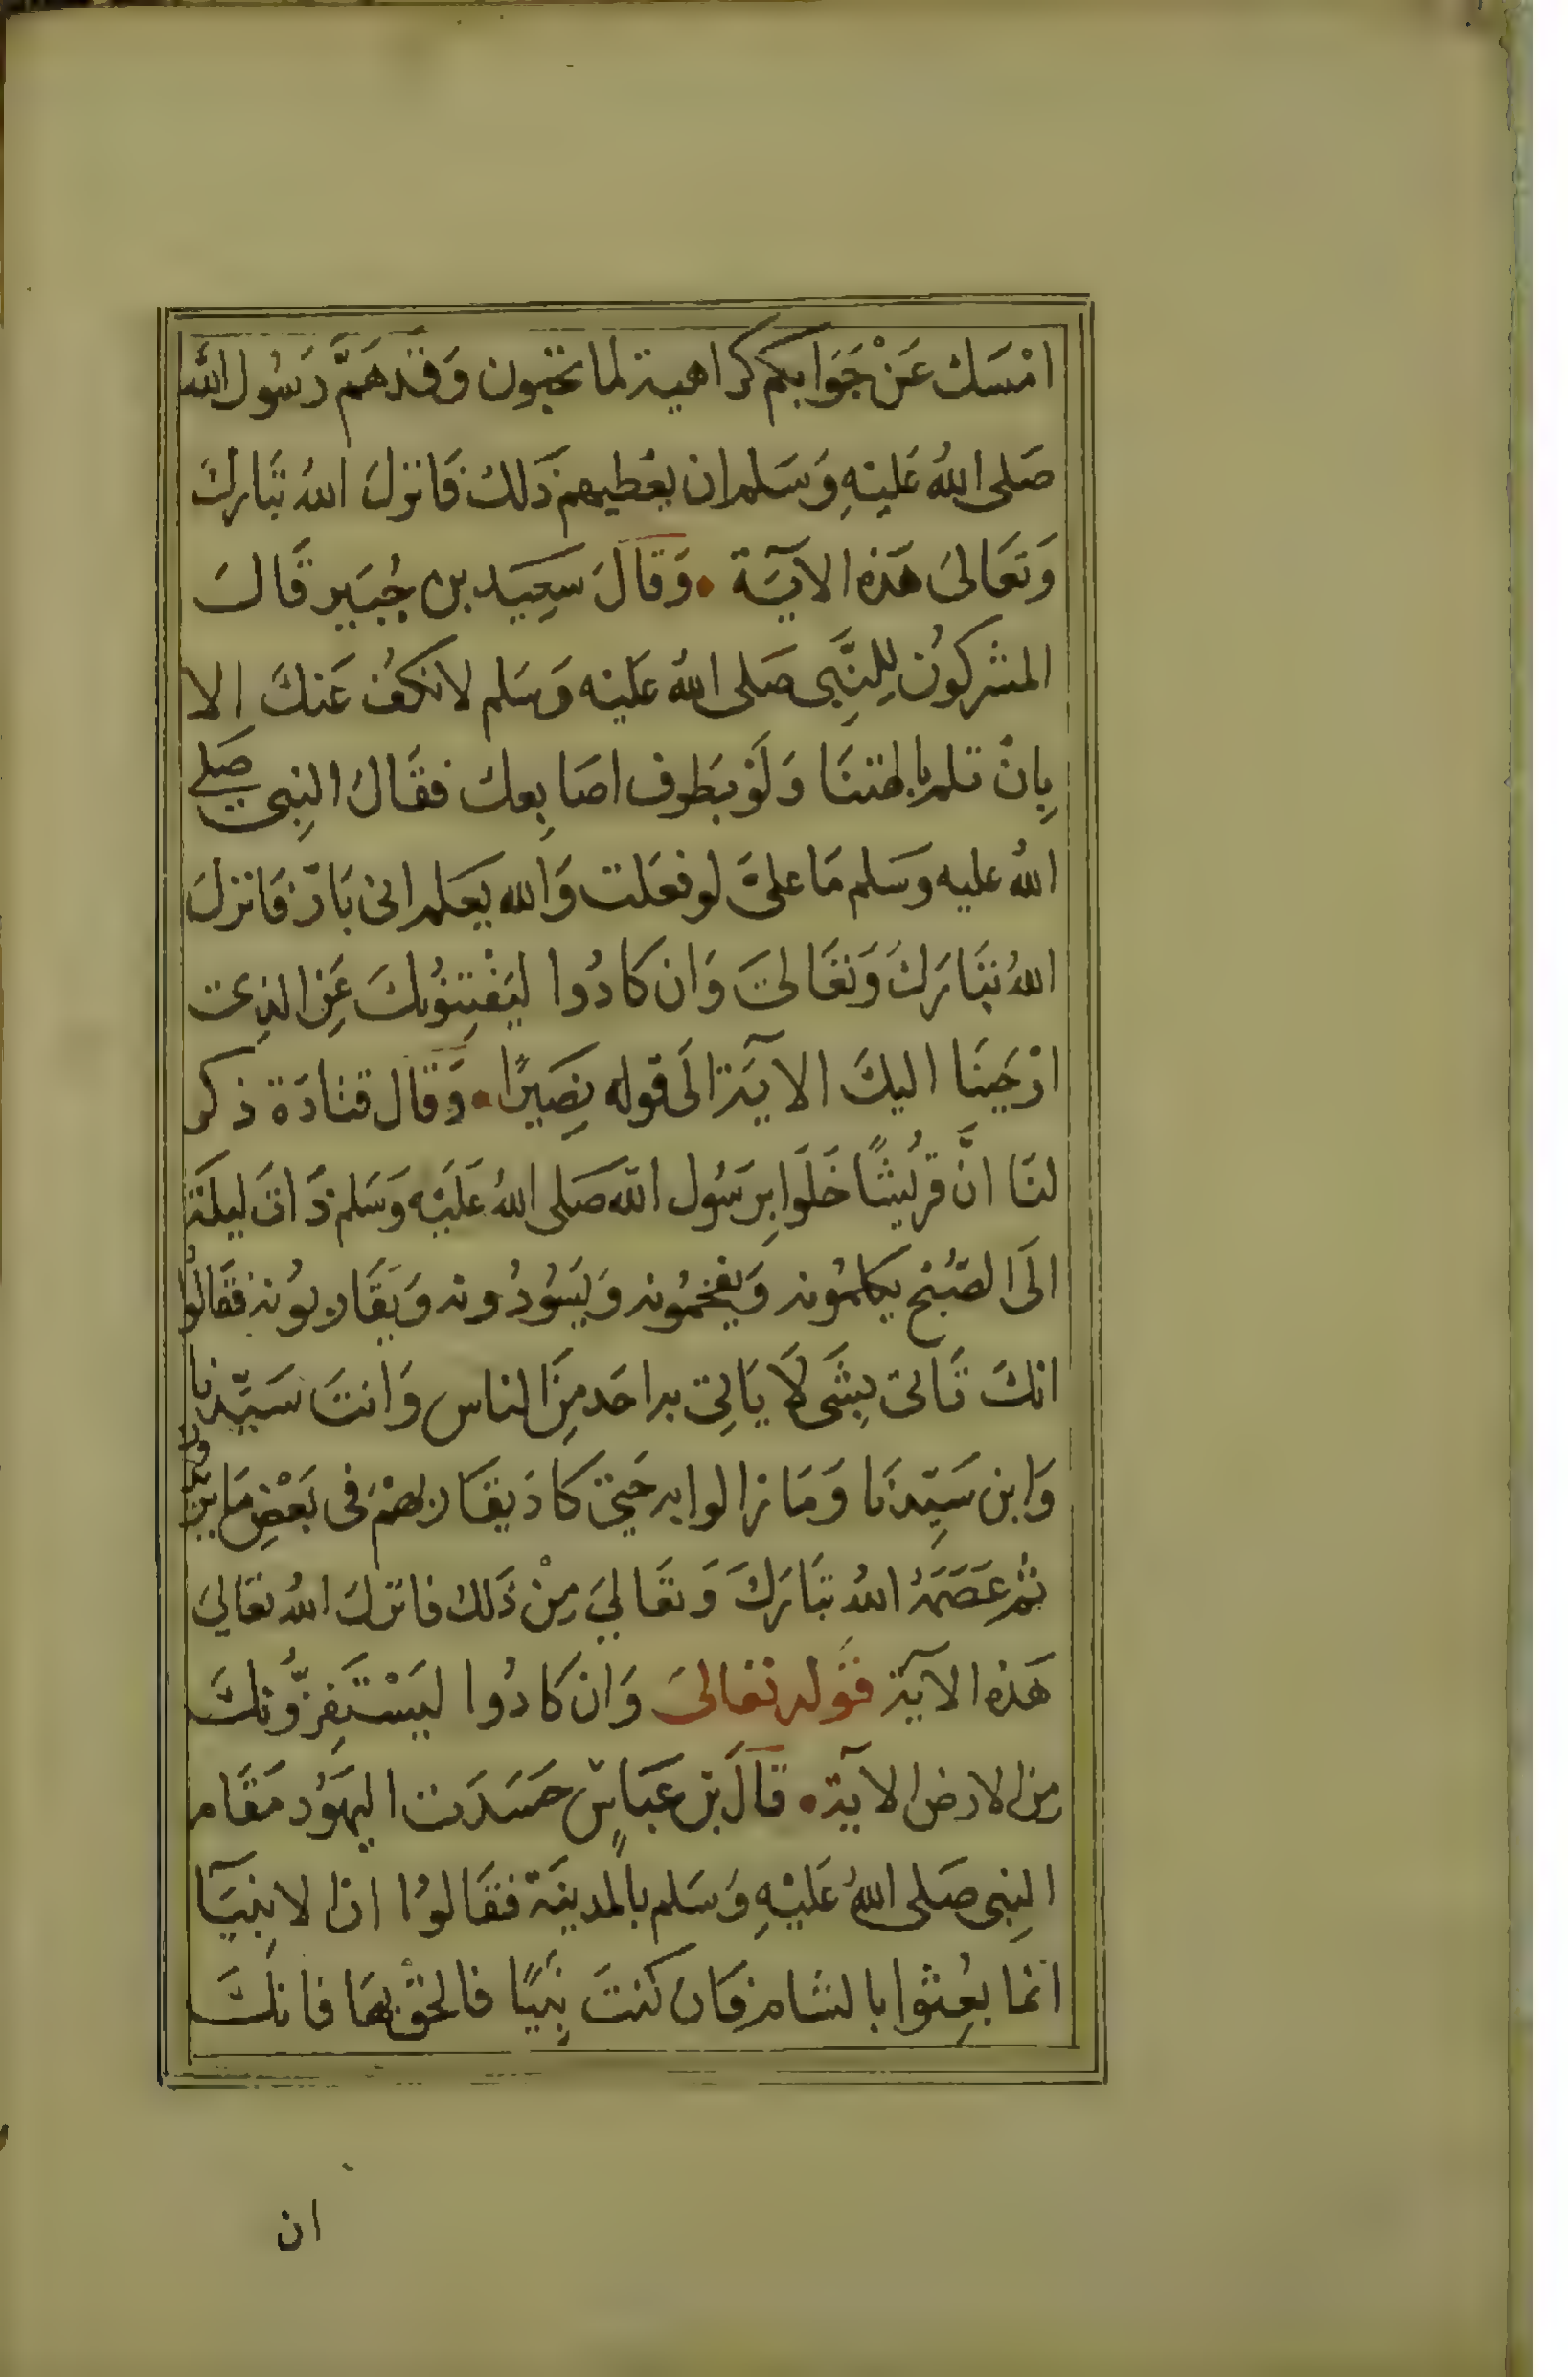 امْسَك عَنْ جَوَابكم كراهية لما تحبون وَقَد هَمَّ رَسُول الله
صَلى اللهُ عَليْهِ وَسَلم ان يعْطيهم ذَلكَ فَانزلَ اللهُ تبَاركَ
وَتعَالىَ هَذه الآيَة • وَقَالَ سَعِيَد بن جُبَير قَالَ
المشركوُن لِلنَّبِى صَلى اللهُ عَليْه وَسَلم لا نكفُ عَنكَ الا
بِانْ تلم بالهتنَا وَلَوْ بَطرف اصَابِعك فقَالَ النِبى صَلى
اللهُ عليه وسَلم مَا علىَّ لو فعَلت وَالله يعَلم انى بَارّ فَانزلَ
اللهُ تبَاركَ وَتعَالىَ وَان كادُوا ليَفْتِنُونكَ عَنِ الذِى
اوْحَينَا اليكَ الآيَة الَى قوله نصَيرًا • وَقَال قتادَة ذكر
لنَا انَّ قريُشًا خَلَوا برَسُول الله صَلى اللهُ عَليَه وَسَلم ذَات ليلَة
الَى الصّبُح يكلموُنه وَيفخموُنه وَيَسُوّدُونه وَيَقَاربوُنه فقَالوُا
انكَ تَاتى بِشَى لاَ يَاتِى به احَد مِنَ الناس وَانتَ سَيّدنا
وَابن سَيِّدنَا وَمَا زالوا به حَتى كَادَ يقَاربهمْ فى بَعْضِ مَا يريدون
ثم عَصَمَهُ اللهُ تبَاركَ وَتعَالىَ مِنْ ذَلكَ فانزلَ اللهُ تعَالىَ
هَذه الآية قوله تعَالىَ وَان كادُوا ليَسْتَفِزُّونكَ
مِنَ الارض الآية • قَالَ بن عَبَاسٍ حَسَدَت اليهَوُد مقَام
النِبى صَلى اللهُ عَليْهِ وَسَلم بالمدينَة فقَالوُا انّ الانبيَآ
انما بعُثِوا بالشام فَان كنتَ نبِيًا فالحقْ بهَا فانكَ
ان